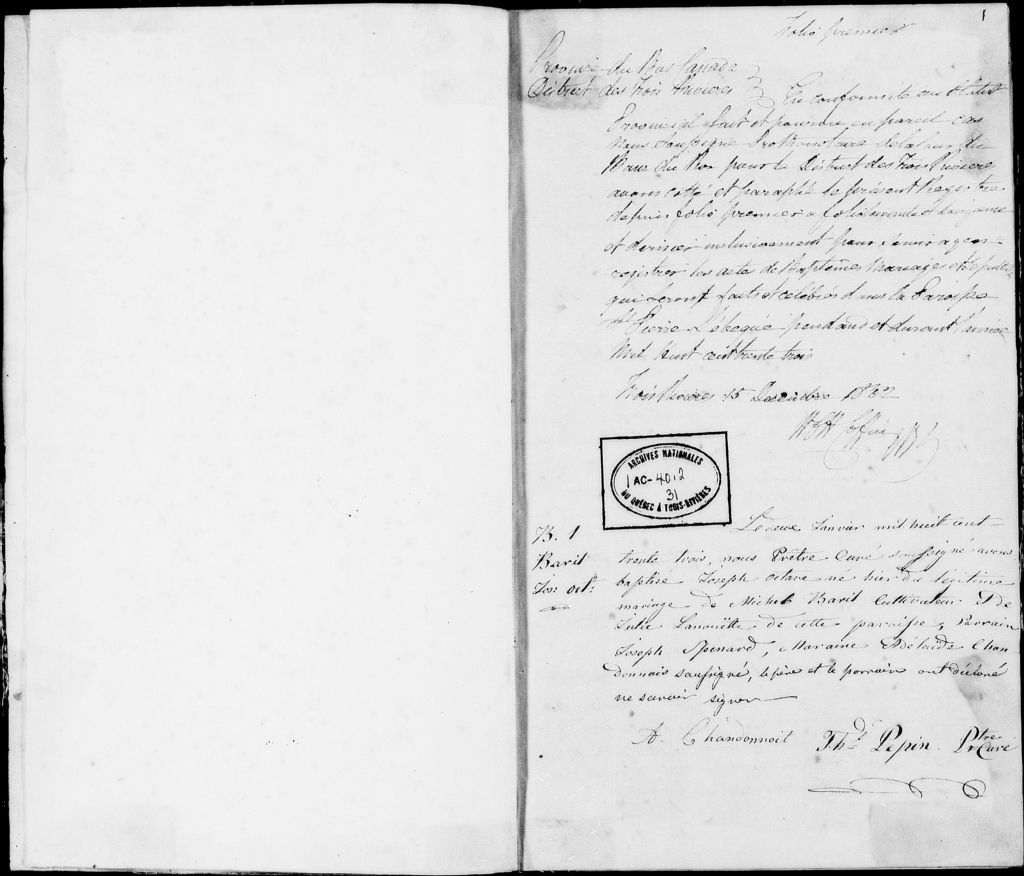 1
Folio premier
Province du Bas Canada
District des Trois Rivieres
En conformité au Statut
Provincial fait et pourvu en pareil cas
Nous soussigné Prothonotaire de la Cour du
Banc du Roi pour le District des Trois Rivieres
avons cotté et paraphé le présent Registre
depuis folio premier a folio trente et
et dernier inclusivement pour servir a y en-
registrer les acte de Baptêmes Mariage et Sepulture
qui seront faits et célébrés dans la Paroisse
St Pierre L'ebequé pendand et durant l'année
Mil huit cent trente trois
Trois Rivieres 15 Decembre 1832
ARCHIVES NATIONALES
AC- 40.2
31
DU QUÉBEC À TROIS-RIVIÈRES
B. 1
Baril
Jos: oct:
Le deux Janvier mil huit cent
trente trois, nous Prêtre Curé soussigné avons
baptisé Joseph octave né hier du légitime
mariage de Michel Baril Cultivateur & de
Julie Lanouëtte de cette paroisse, Parrain
Joseph Spenard, Maraine Adélaïde Chan
donnais soussigné, le père et le parrain ont déclaré
ne savoir signer
A. Chandonnait Thd. Pepin. Ptre Curé